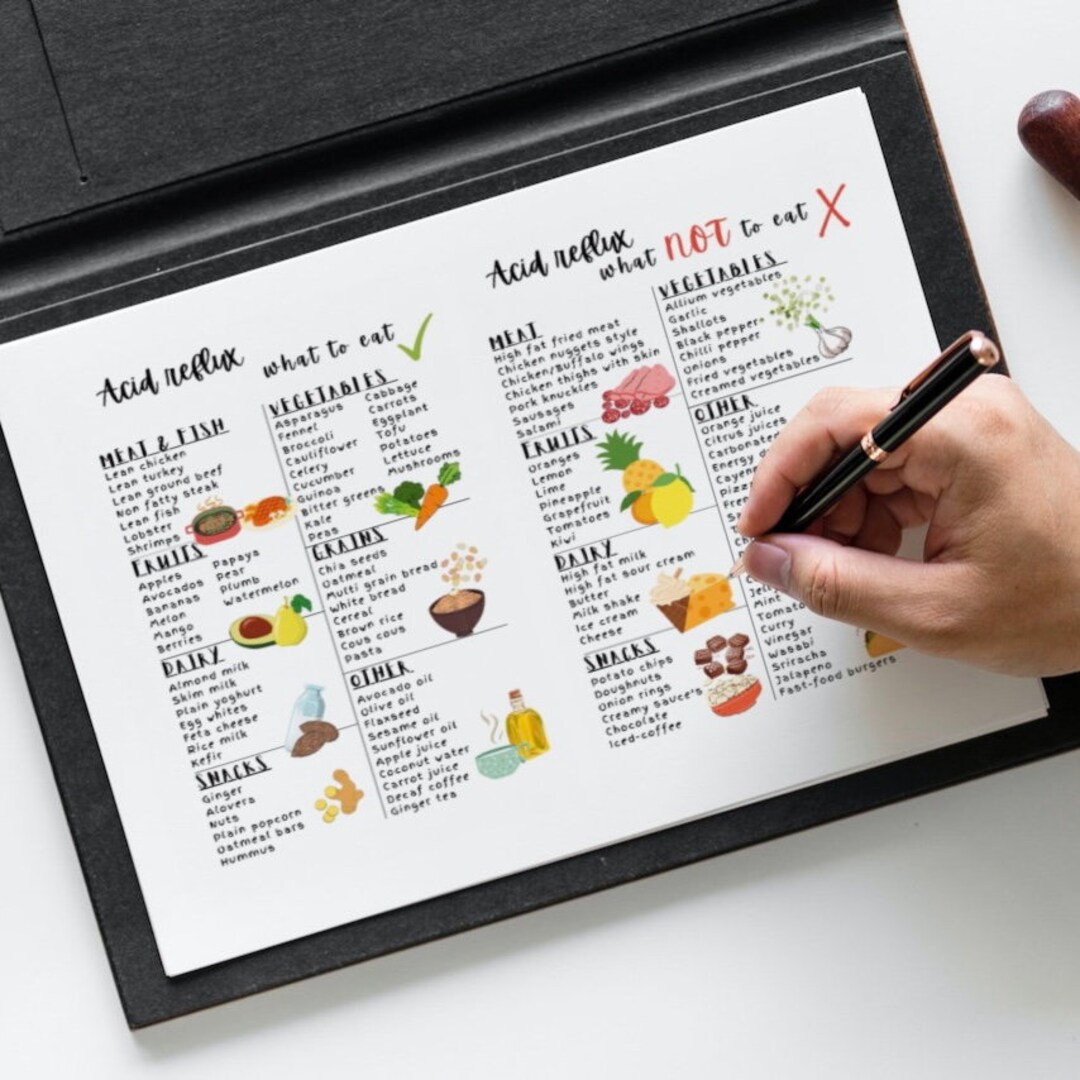 Acid reflux what to eat
MEAT & FISH
Lean chicken
Lean turkey
Lean ground beef
Non fatty steak
Lean fish
Lobster
Shrimps
FRUITS
Apples
Avocados
Bananas
Melon
Mango
Berries
Papaya
Pear
Plumb
Watermelon
DAIRY
Almond milk
Skim milk
Plain yoghurt
Egg whites
Feta cheese
Rice milk
Kefir
SNACKS
Ginger
Alovera
Nuts
Plain popcorn
Oatmeal bars
Hummus
VEGETABLES
Asparagus
Fennel
Broccoli
Cauliflower
Celery
Cucumber
Quinoa
Bitter greens
Kale
Peas
Cabbage
Carrots
Eggplant
Tofu
Potatoes
Lettuce
Mushrooms
GRAINS
Chia seeds
Oatmeal
Multi grain bread
White bread
Cereal
Brown rice
Cous cous
Pasta
OTHER
Avocado oil
Olive oil
Flaxseed
Sesame oil
Sunflower oil
Apple juice
Coconut water
Carrot juice
Decaf coffee
Ginger tea
Acid reflux
what NOT to eat
MEAT
High fat fried meat
Chicken nuggets style
Chicken/Buffalo wings
Chicken thighs with skin
Pork knuckles
Sausages
Salami
FRUITS
Oranges
Lemon
Lime
Pineapple
Grapefruit
Tomatoes
Kiwi
DAIRY
High fat milk
High fat sour cream
Butter
Milk shake
Ice cream
Cheese
SNACKS
Potato chips
Doughnuts
Onion rings
Creamy sauce's
Chocolate
Iced-coffee
VEGETABLES
Allium vegetables
Garlic
Shallots
Black pepper
Chilli pepper
Onions
Fried vegetables
Creamed vegetables
OTHER
Orange juice
Citrus juices
Mint
Curry
Vinegar
Wasabi
Sriracha
Jalapeno
Fast-food burgers